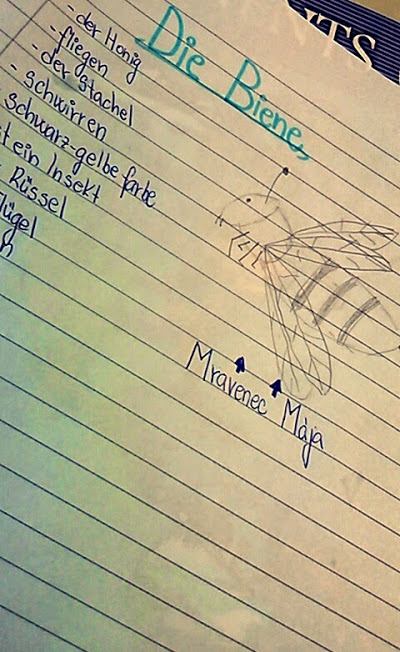 NTS
Die Biene
- der Honig
- fliegen
- der Stachel
- schwirren
schwarz-gelbe farbe
ein Insekt
Rüssel
Mravenec Mája